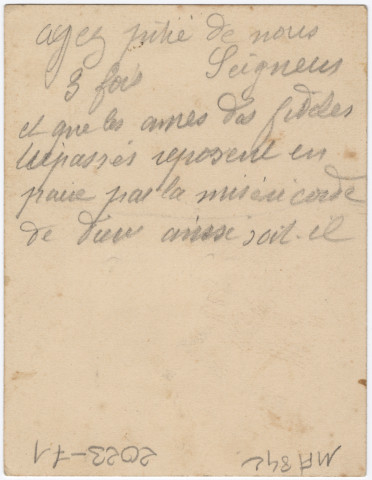 ayez pitié de nous
3 fois Seigneur
et que les ames des fidèles
trépassés reposent en
paix par la miséricorde
de dieu ainsi soit-il
MA 342
2023-71